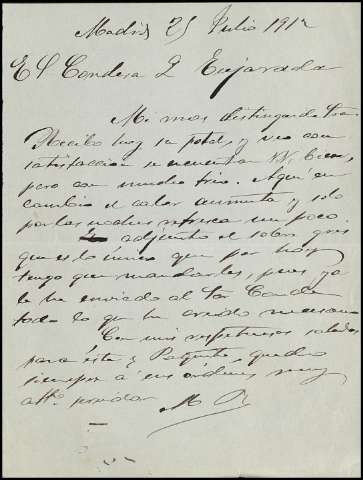 Madrid 25 Julio 191
Condesa
Mi mas distinguida Sra.
Recibo hoy su postal y veo con
satisfacción se encuentra V. bien,
pero con mucho frio. Aqui en
cambio el calor aumenta y solo
por las noches refresca un poco.
adjunto el sobre gris
que es lo unico que por hoy
tengo que mandarles, pues ya
le he enviado al Sor Conde
todo lo que he creido necesario
Con mis respetuosos saludos
para éste y Paquito, quedo
siempre á sus órdenes muy
atto.
M